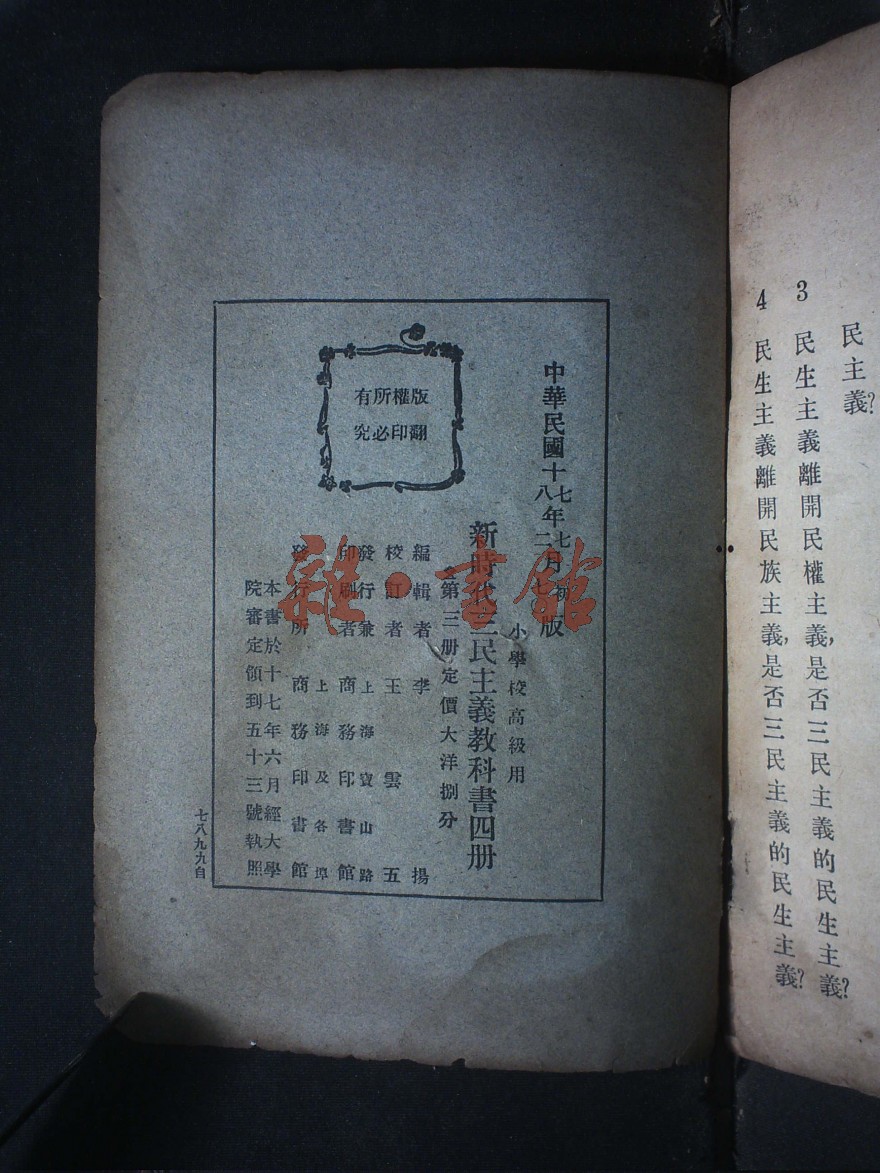 民主義?
3 民生主義離開民權主義,是否三民主義的民生主義?
4 民生主義離開民族主義,是否三民主義的民生主義?
版權所有
翻印必究
中華民國十七年七月初版
八二七版
小學校高級用
新時代三民主義教科書四册
第三册定價大洋捌分
編輯者 李揚
校訂者 王雲五
發行兼印刷者 上海寶山路 商務印書館
發行所 上海及各埠 商務印書館
本書於十七年六月經大學
院審定領到五十三號執照
七八九九自
雜·書館